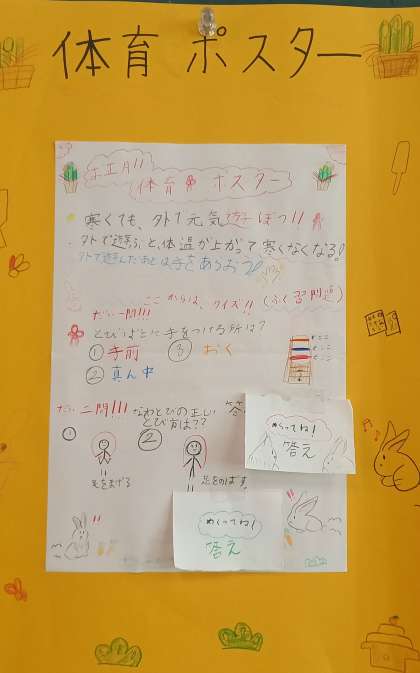 体育 ポスター
お正月!!
体育 ポスター
寒くても、外で元気に遊ぼう!!
・外で遊ぶと、体温が上がって寒くなくなる!
外で遊んだあとは手をあらおう!
ここからは、クイズ!! (ふく習問題)
だい一問!!!
とびばこに手をつける所は?
① 手前 ③ おく
② 真ん中
だい二問!!! なわとびの正しい
とび方は??
① ②
足をまげる
足をのばす
めくってね!
答え
めくってね!
答え